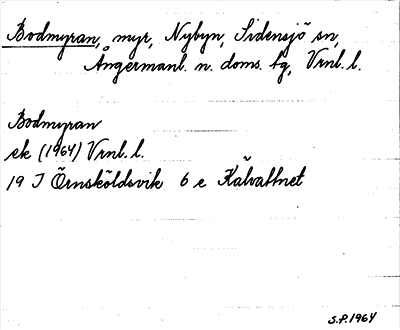 Bodmyran, myr, Nybyn, Sidensjö sn,
Ångermanl. n. doms. tg, Vrnl. l.
Bodmyran
ek (1964) Vrnl. l.
19 J Örnsköldsvik 6 e Kälvattnet
S.P. 1964